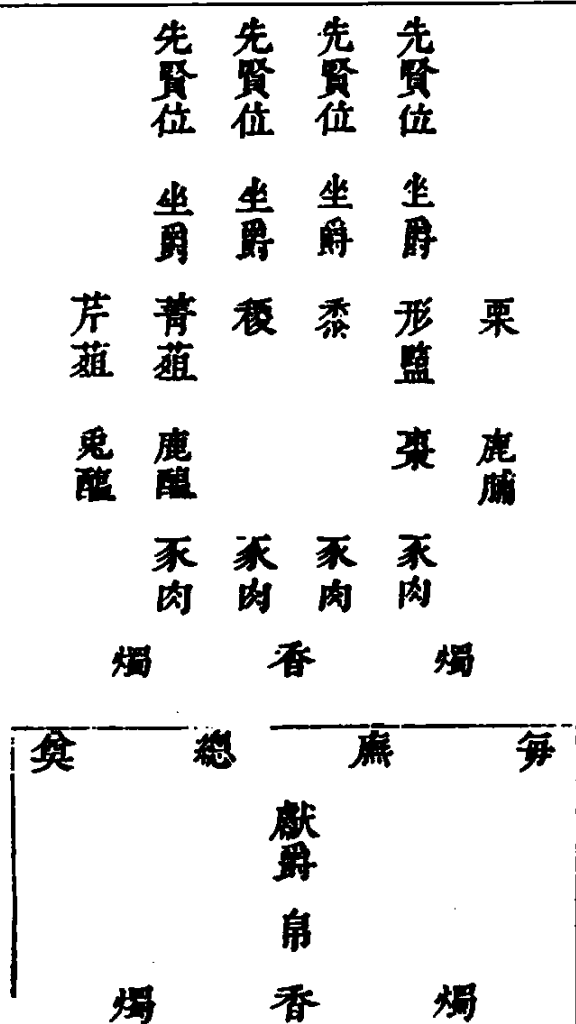 先賢位 先賢位 先賢位 先賢位
坐爵 坐爵 坐爵 坐爵
栗 形鹽 黍 稷 菁菹 芹菹
鹿脯 棗 鹿醢 兎醢
豕肉 豕肉 豕肉 豕肉
燭 香 燭
每廡總奠
獻爵
帛
燭 香 燭